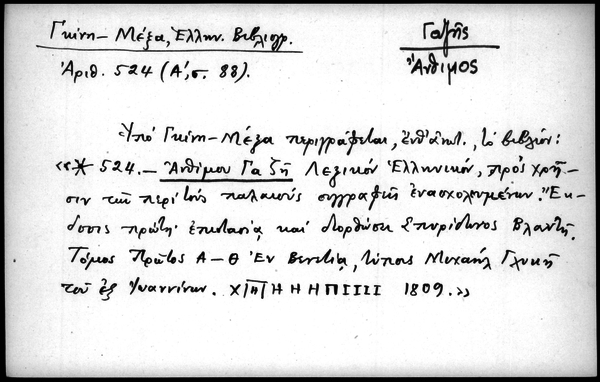 Γκίνη – Μέξα, Ἑλλην. Βιβλιογρ.
Ἀριθ. 524 (Α', σ. 88).
Γαζῆς
Ἄνθιμος
Ὑπὸ Γκίνη – Μέξα περιγράφεται, ἐνθ' ἀνωτ., τὸ βιβλίον:
«* 524. – Ἀνθίμου Γαζῆ Λεξικὸν Ἑλληνικόν, πρὸς χρῆ-
σιν τῶν περὶ τοὺς παλαιοὺς συγγραφεῖς ἐνασχολουμένων. Ἔκ-
δοσις πρώτη· ἐπιστασίᾳ καὶ διορθώσει Σπυρίδωνος Βλαντῆ.
Τόμος Πρῶτος Α – Θ Ἐν Βενετίᾳ, τύποις Μιχαὴλ Γλυκῆ
τοῦ ἐξ Ἰωαννίνων. ΧΗΗΗΠΙΙΙΙ 1809.»